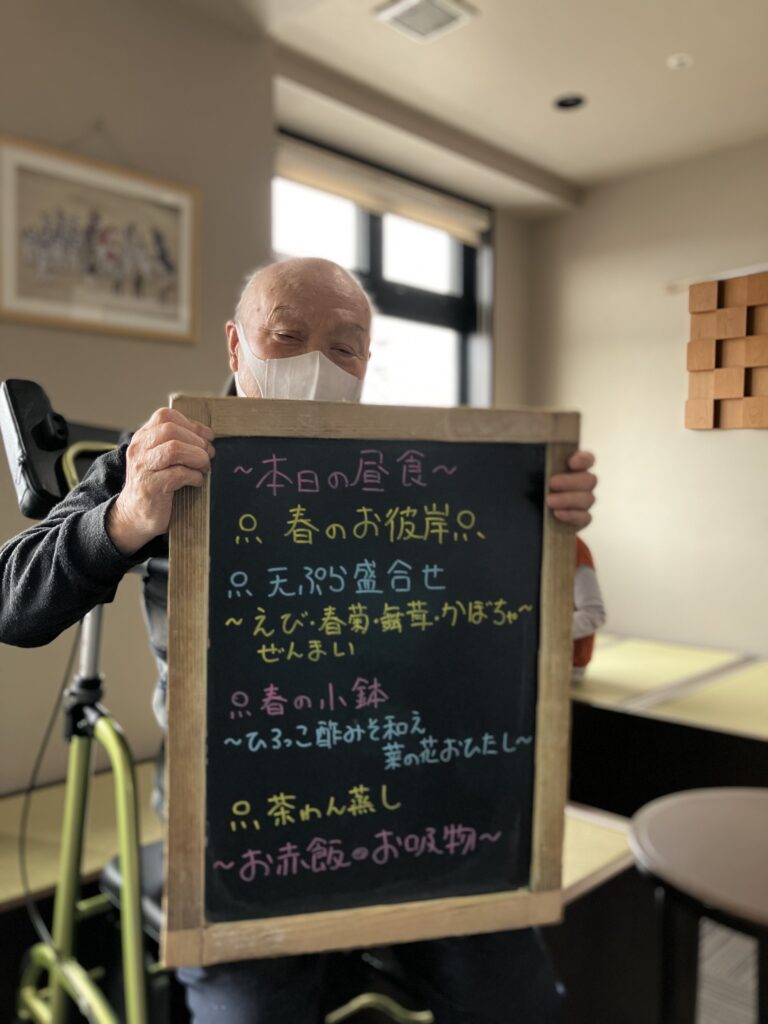 ～本日の昼食～
春のお彼岸
天ぷら盛合せ
～えび・春菊・舞茸・かぼちゃ～
ぜんまい
春の小鉢
～ひろっこ酢みそ和え
菜の花おひたし～
茶わん蒸し
～お赤飯 お吸物～